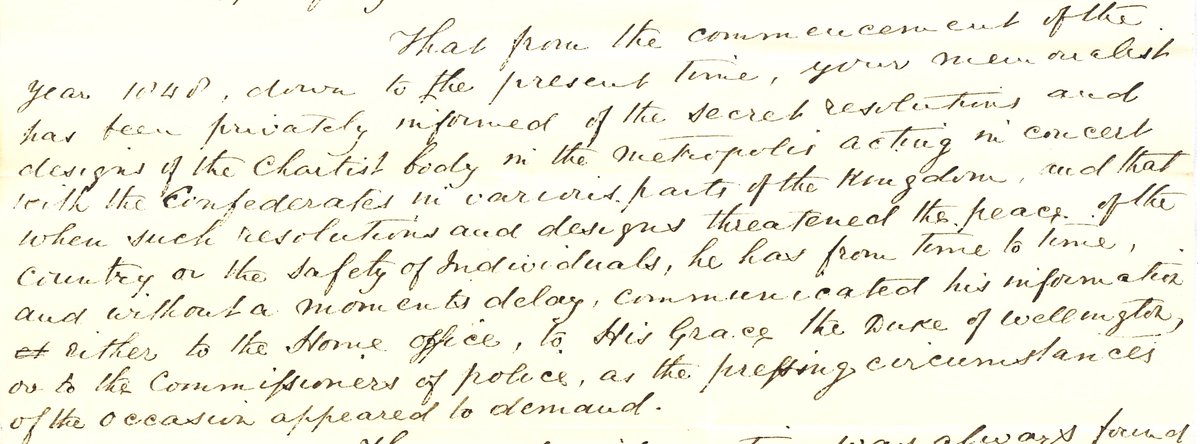 That from the commencement of the
year 1848, down to the present time, your memorialist
has been privately informed of the secret resolutions and
designs of the Chartist body in the Metropolis acting in concert
with the Confederates in various parts of the Kingdom, and that
when such resolutions and designs threatened the peace of the
Country or the safety of Individuals, he has from time to time,
and without a moments delay, communicated his information
either to the Home Office, to His Grace the Duke of Wellington,
or to the Commissioners of police, as the pressing circumstances
of the occasion appeared to demand.
always found